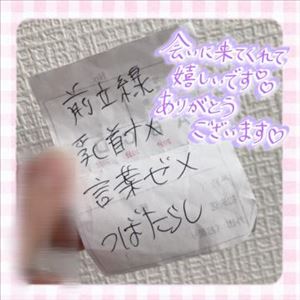 会いに来てくれて
嬉しいです♡
ありがとう
ございます♡
前立線
乳首ナメ
言葉ぜメ
つばたらし